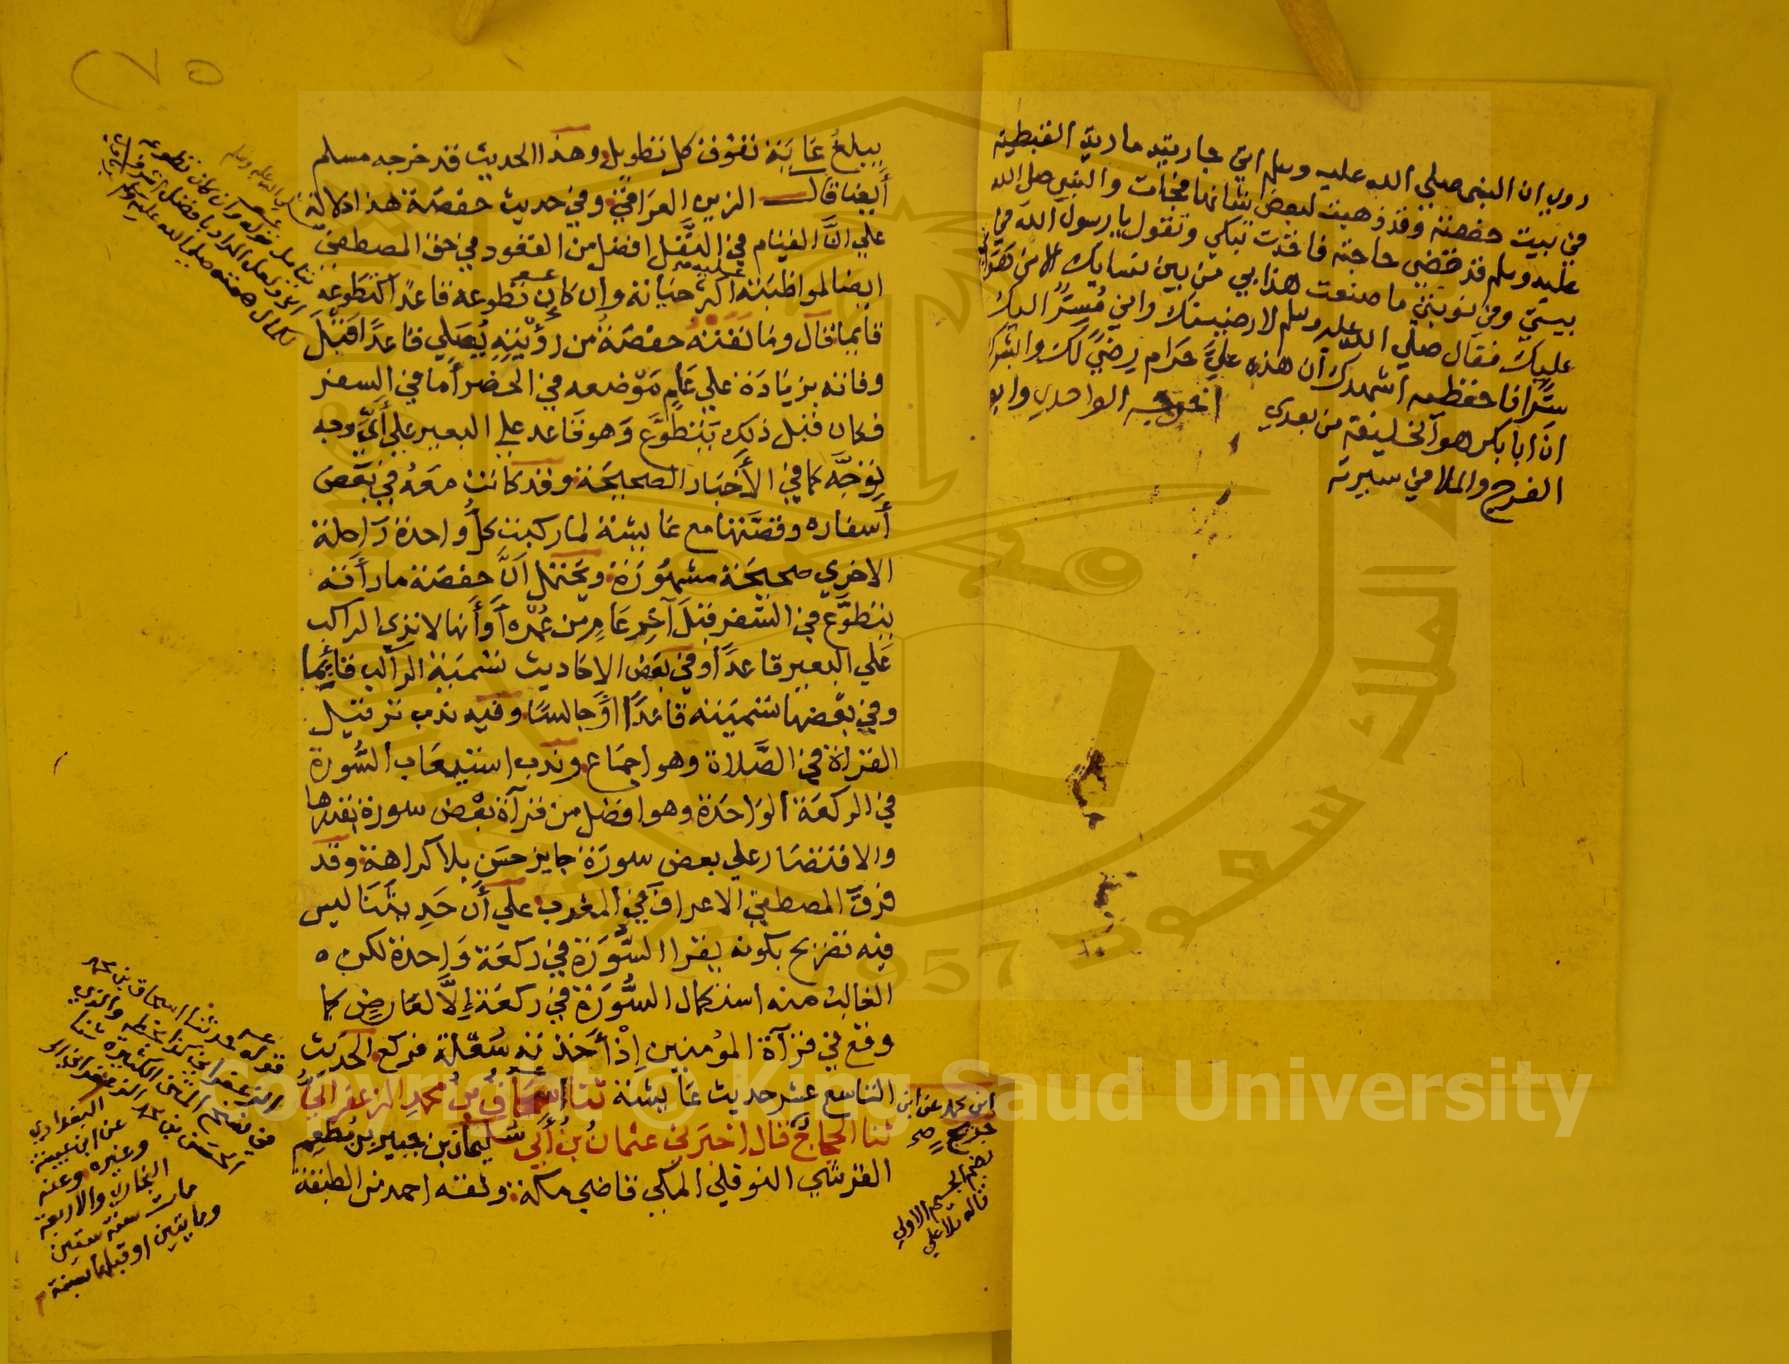 روي ان النبي صلي الله عليه وسلم اتي جاريته مارية القبطية
في بيت حفصة وقد ذهبت لبعض شانها فجات والنبي صلي الله
عليه وسلم قد قضي حاجته فاخذت تبكي وتقول يا رسول الله في
بيتي وفي نوبتي ما صنعت هذا بي من بين نسايك الا من هواني
عليك فقال صلي الله عليه وسلم لارضينك واني مسر اليك
سرا فاحفظيه اشهدك ان هذه علي حرام رضي لك وابشرك
ان ابا بكر هو الخليفة من بعدي اخرجه الواحدي وابو
الفرج والملا في سيرته
يبلغ غاية تفوق كل تطويل وهذا الحديث قد خرجه مسلم
أيضا قال الزين العراقي وفي حديث حفصة هذا دلالة
علي ان القيام في النفل افضل من القعود في حق المصطفي
ايضا لمواظبته اكثر حياته وان كان تطوعه قاعدا كتطوعه
قايما قال وما نفته حفصة من رؤيته يصلي قاعدا قبل
وفاته بزيادة علي عام موضعه في الحضر أما في السفر
فكان قبل ذلك يتطوع وهو قاعد علي البعير علي أي وجه
توجه كما في الأخبار الصحيحة وقد كانت معه في بعض
أسفاره وقصتها مع عايشة لما ركبت كل واحدة راحلة
الاخري صحيحة مشهورة ويحتمل أن حفصة ما رأته
يتطوع في السفر قبل آخر عام من عمره أو أنها لا تري الراكب
علي البعير قاعدا وفي بعض الاحاديث تسمية الراكب قايما
وفي بعضها تسميته قاعدا او جالسا وفيه ندب ترتيل
القراة في الصلاة وهو اجماع وندب استيعاب السورة
في الركعة الواحدة وهو افضل من قرآة بعض سورة بقدرها
والاقتصار علي بعض سورة جايز حسن بلا كراهة وقد
فرق المصطفي الاعراف في المغرب علي أن حديثنا ليس
فيه تصريح بكونه يقرا السورة في ركعة واحدة لكن ه
الغالب منه استكمال السورة في ركعة إلا لعارض كما
وقع في قرآة المؤمنين إذ أخذته سعلة فركع الحديث
التاسع عشر حديث عايشة ثنا اسحاق بن محمد الزعفراني
ثنا الحجاج قال اخبرني عثمان بن أبي سليمان بن جبير بن مطعم
القرشي النوفلي المكي قاضي مكة وثقه احمد من الطبقة
ابن محمد عن ابن
جريج صح
بضم الجيم الاولي
قاله ملا علي
قوله حدثنا اسحاق بن محمد
الزعفراني كذا بخطه والذي
في نسخ المتن الكثيرة ثنا
الحسن بن محمد الزعفراني
البغدادي
عن ابن عيينة
وغيره وعنه
البخاري والاربعة
مات سنة ستين
ومايتين او قبلها بسنة